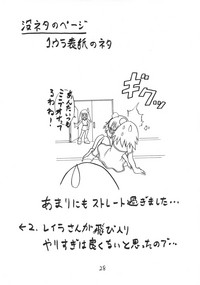 没ネタのページ
1,ウラ表紙のネタ
ギクッ
あんたいつも
ここでオナって
るわね!
あまりにもストレート過ぎました…
←2. レイラさんが飛び入り
やりすぎは良くないと思ったので…
28